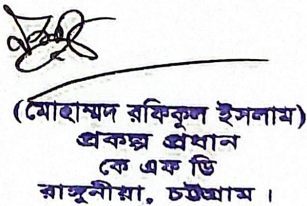 (মোহাম্মদ রফিকুল ইসলাম)
প্রকল্প প্রধান
কে এফ ডি
রাঙ্গুনীয়া, চট্টগ্রাম ।